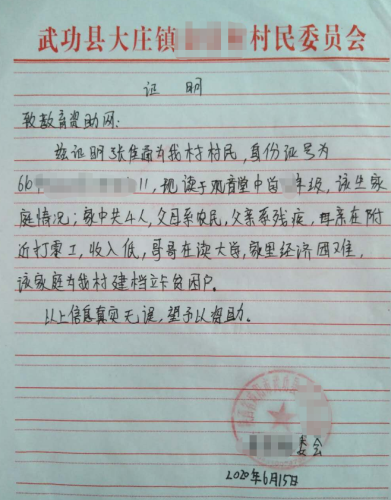 武功县大庄镇 村民委员会
证 明
致教育资助网:
兹证明张佳 为我村村民,身份证号为
6 11,现读于观音堂中 年级,该生家
庭情况;家中共4人,父母系农民,父亲系残疾,母亲在附
近打零工,收入低,哥哥在读大学,家里经济困难,
该家庭为我村建档立卡贫困户。
以上信息真实无误,望予以资助。
委会
2020年6月15日